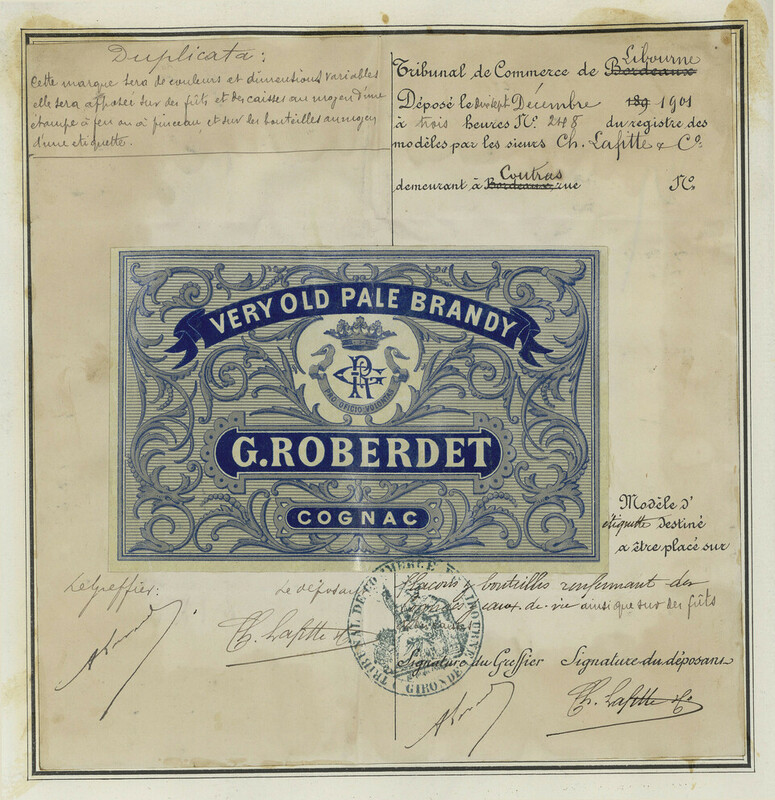 Duplicata:
Cette marque sera de couleurs et dimensions variables
elle sera apposée sur des fûts et des caisses au moyen d'une
étampe à feu ou à pinceau, et sur les bouteilles au moyen
d'une etiquette.
Tribunal de Commerce de Bordeaux Libourne
Déposé le dix sept Décembre 189 1901
à trois heures No. 248 du registre des
modèles par les sieurs Ch. Lafitte & Co.
demeurant à Bordeaux Coutras rue No
VERY OLD PALE BRANDY
G.ROBERDET
COGNAC
Modèle d'
étiquette destiné
a être placé sur
flacons, bouteilles renfermant des
eaux de vie ainsi que sur des fûts
Le Greffier:
Le déposant
Ch. Lafitte & Co
TRIBUNAL DE COMMERCE LIBOURNE
GIRONDE
Signature du Greffier Signature du déposans
Ch. Lafitte & Co